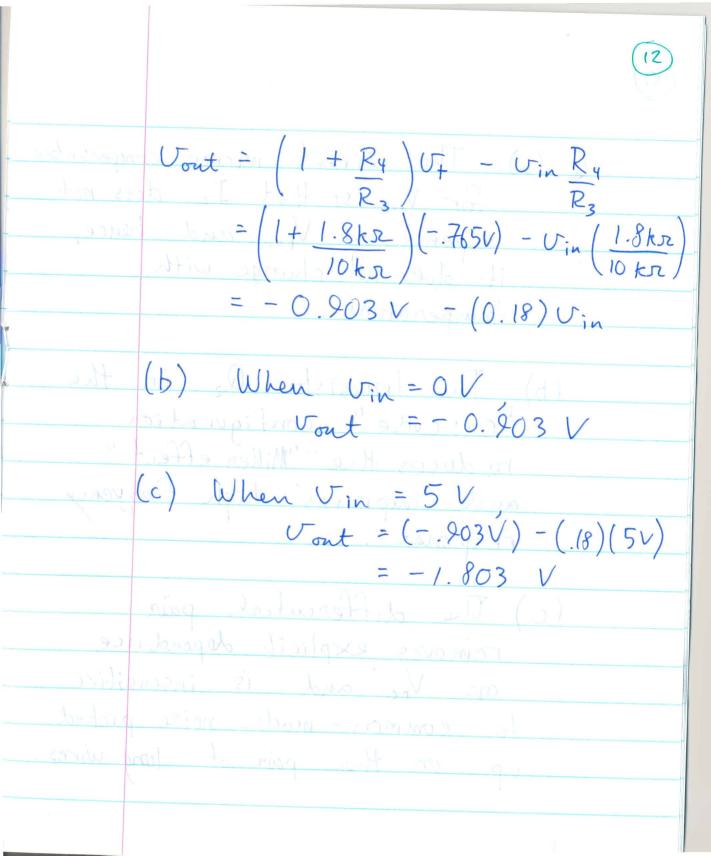 12
Vout = (1 + R4/R3) V+ - Vin R4/R3
= (1 + 1.8kΩ/10kΩ)(-.765V) - Vin (1.8kΩ/10kΩ)
= -0.903 V - (0.18) Vin
(b) When Vin = 0 V,
Vout = -0.903 V
(c) When Vin = 5 V,
Vout = (-.903V) - (.18)(5V)
= -1.803 V